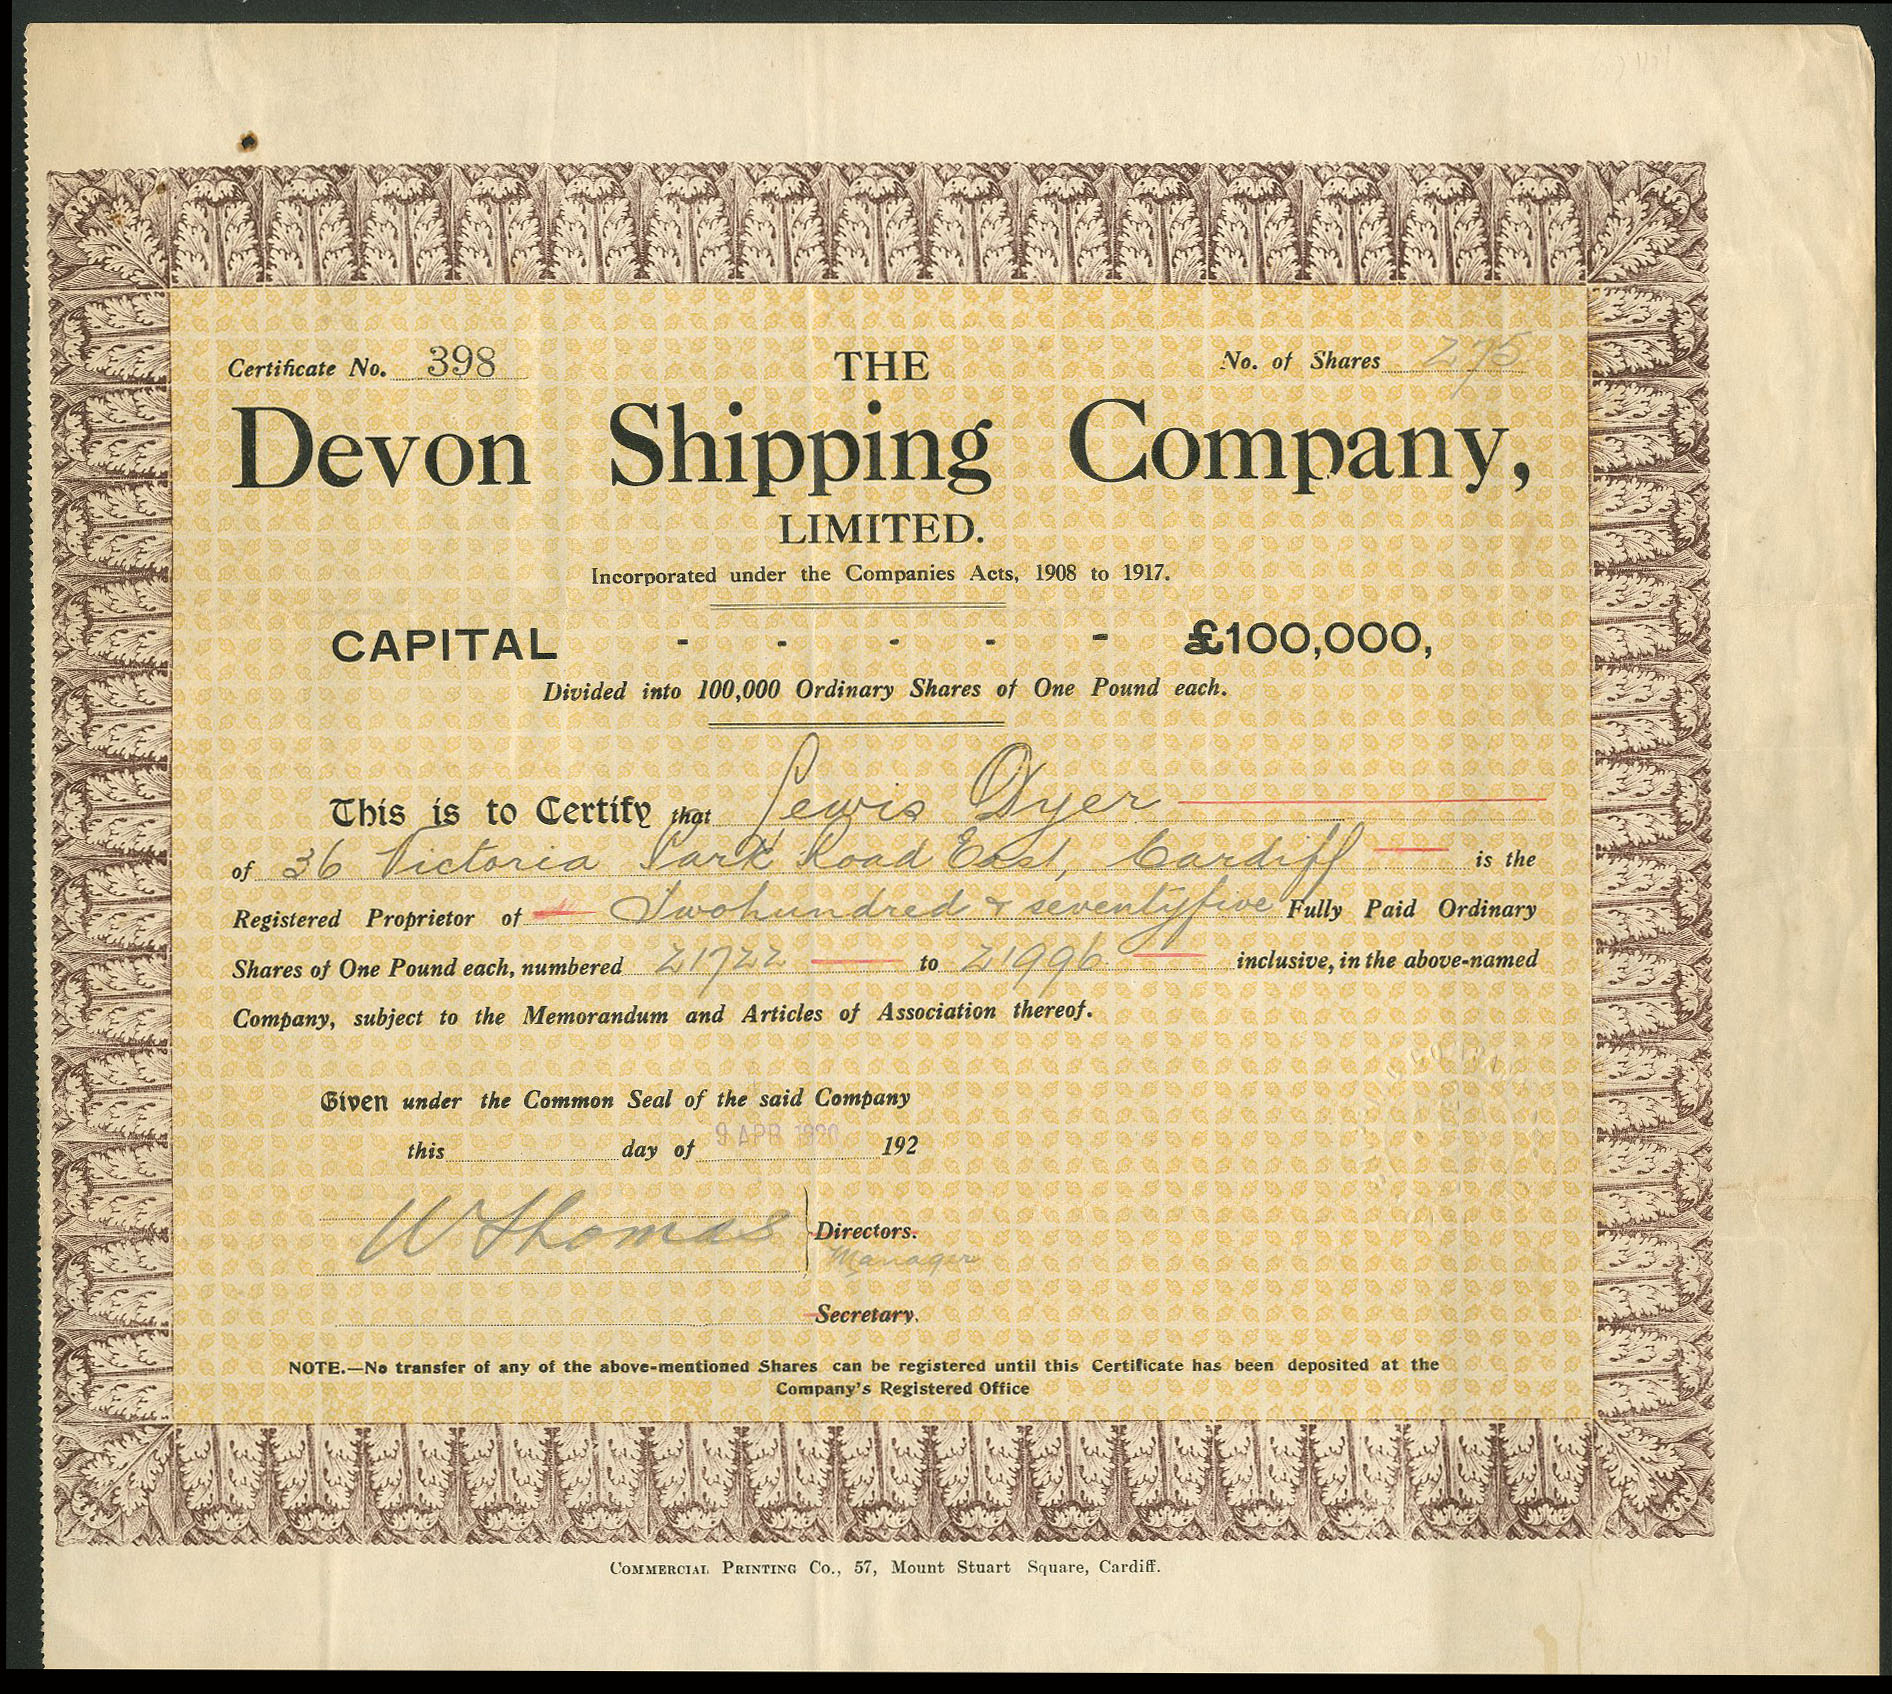 Certificate No. 398 THE No. of Shares 275
Devon Shipping Company,
LIMITED.
Incorporated under the Companies Acts, 1908 to 1917.
CAPITAL - - - - - £100,000,
Divided into 100,000 Ordinary Shares of One Pound each.
This is to Certify that Lewis Dyer
of 36 Victoria Park Road East, Cardiff is the
Registered Proprietor of Twohundred & seventyfive Fully Paid Ordinary
Shares of One Pound each, numbered 21722 to 21996 inclusive, in the above-named
Company, subject to the Memorandum and Articles of Association thereof.
Given under the Common Seal of the said Company
this day of 9 APR 1920 192
W Thomas Directors.
Manager
Secretary.
NOTE.—No transfer of any of the above-mentioned Shares can be registered until this Certificate has been deposited at the
Company's Registered Office
COMMERCIAL PRINTING Co., 57, Mount Stuart Square, Cardiff.